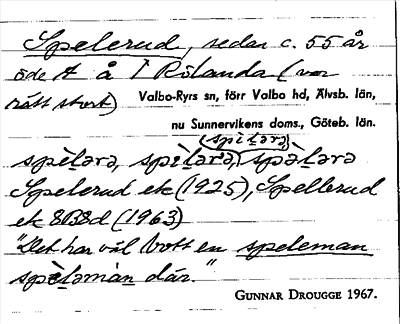 Spelerud, sedan c. 55 år
öde t å 1 Rölanda (var
rätt stort) Valbo-Ryrs sn, förr Valbo hd, Älvsb. län,
nu Sunnervikens doms., Göteb. län.
(spìḷərə)
spèḷərə, spìḷərə, spəḷərə
Spelerud ek (1925), Spellerud
ek EBBd (1963)
"Det har väl bott en speleman
spèḷəmàn där."
GUNNAR DROUGGE 1967.